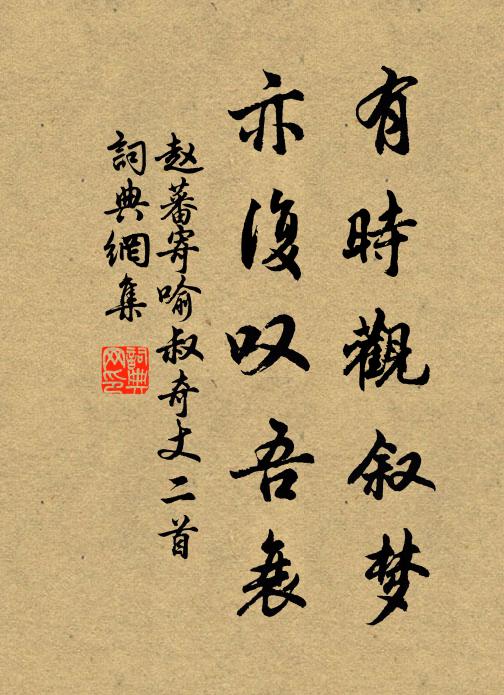 有時觀叙梦
亦復叹吾衰
赵蕃寄喻叔奇丈二首
詞典網集
詞典网印